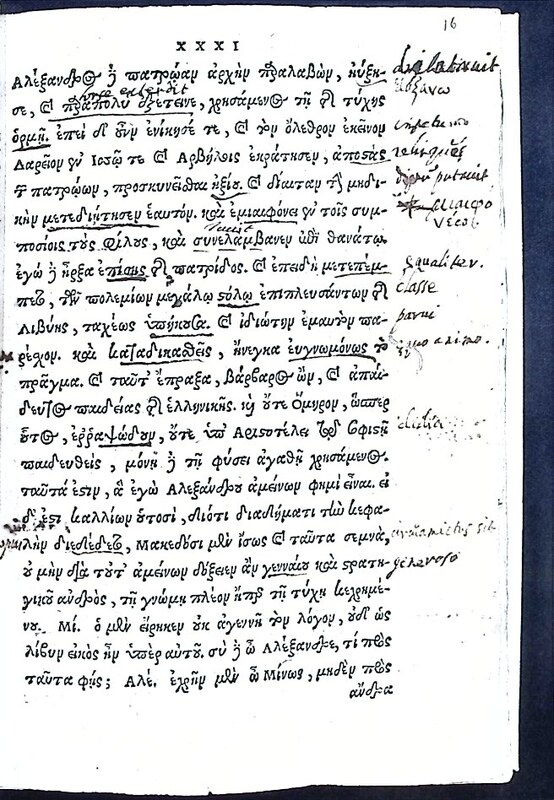 16
XXXI
Ἀλέξανδρος δὲ πατρῴαν ἀρχὴν παραλαβὼν, ηὔξη- dilatauit
σε, καὶ παραπολὺ ἐξέτεινε, χρησάμενος τῇ τῆς τύχης
ὁρμῇ. ἐπεὶ δὲ οὖν ἐνίκησέ τε, καὶ τὸν ὄλεθρον ἐκεῖνον
Δαρεῖον ἐν Ἰσσῷ τε καὶ Ἀρβήλοις ἐκράτησεν, ἀποστὰς
τῶν πατρῴων, προσκυνεῖσθαι ἠξίου. καὶ δίαιταν τὴν μηδι- putauit
κὴν μετεδιῄτησεν ἑαυτὸν. καὶ ἐμιαιφόνει ἐν τοῖς συμ-
ποσίοις τοὺς φίλους, καὶ συνελάμβανεν ἐπὶ θανάτῳ.
ἐγὼ δὲ ἦρξα ἐπίσης τῆς πατρίδος. καὶ ἐπειδὴ μετεπέμ- equaliter.
πετο, τῶν πολεμίων μεγάλῳ στόλῳ ἐπιπλευσάντων τῆς classe
Λιβύης, ταχέως ὑπήκουσα. καὶ ἰδιώτην ἐμαυτὸν πα- parui
ρέσχον. καὶ καταδικασθεὶς, ἤνεγκα εὐγνωμόνως τὸ animo.
πρᾶγμα. καὶ ταῦτ' ἔπραξα, βάρβαρος ὢν, καὶ ἀπαί-
δευτος παιδείας τῆς ἑλληνικῆς. καὶ οὔτε Ὅμηρον, ὥσπερ
οὗτος, ἐρραψῴδουν, οὔτε ὑπ' Ἀριστοτέλει τῷ σοφιστῇ
παιδευθεὶς, μόνῃ δὲ τῇ φύσει ἀγαθῇ χρησάμενος.
ταῦτά ἐστιν, ἃ ἐγὼ Ἀλεξάνδρου ἀμείνων φημὶ εἶναι. εἰ
δ' ἐστὶ καλλίων οὑτοσὶ, διότι διαδήματι τὴν κεφα-
λὴν διεδέδετο, Μακεδόσι μὲν ἴσως καὶ ταῦτα σεμνὰ,
οὐ μὴν διὰ τοῦτ' ἀμείνων δόξειεν ἂν γενναίου καὶ στρατη- generoso
γικοῦ ἀνδρὸς, τῇ γνώμῃ πλέον ἤπερ τῇ τύχῃ κεχρημέ-
νου. Μί. ὁ μὲν εἴρηκεν οὐκ ἀγεννῆ τὸν λόγον, οὐδ' ὡς
λίβυν εἰκὸς ἦν ὑπὲρ αὑτοῦ. σὺ δὲ ὦ Ἀλέξανδρε, τί πρὸς
ταῦτα φῄς; Ἀλέ. ἐχρῆν μὲν ὦ Μίνως, μηδὲν πρὸς
ἄνδρα